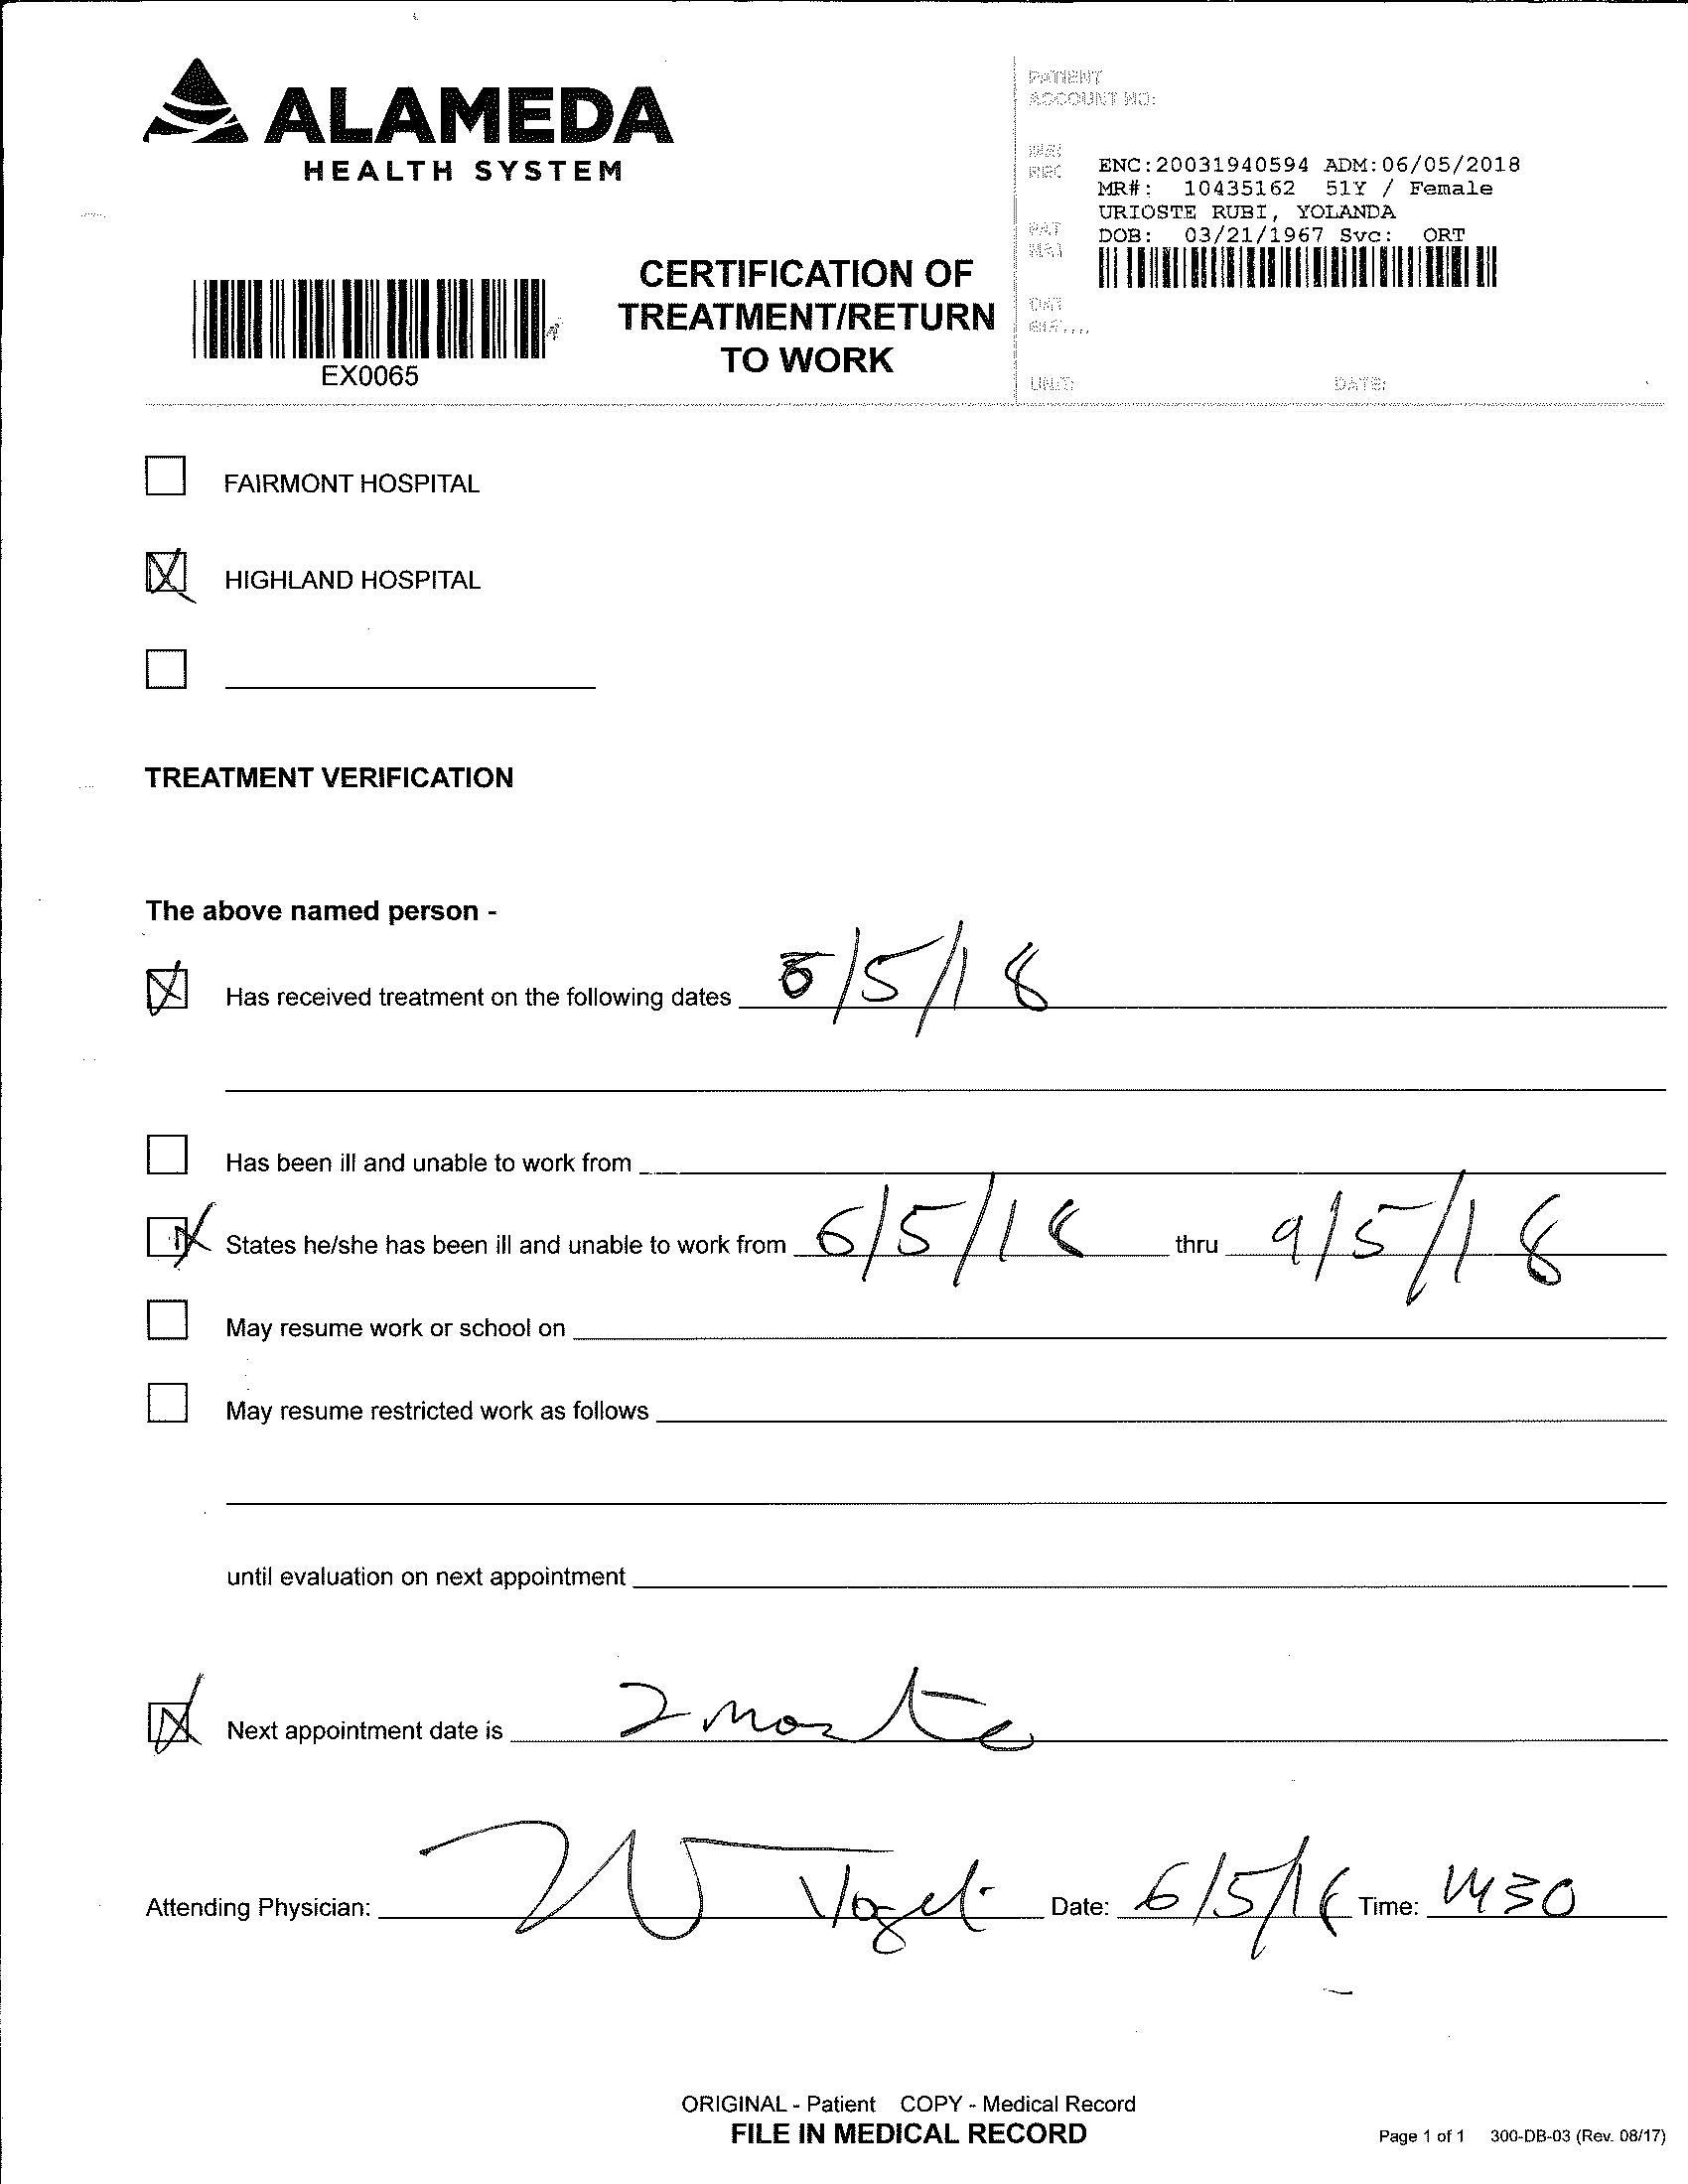 ALAMEDA
HEALTH SYSTEM
EX0065
CERTIFICATION OF
TREATMENT/RETURN
TO WORK
PATIENT
ACCOUNT NO:
ENC:20031940594 ADM:06/05/2018
MR#: 10435162 51Y / Female
URIOSTE RUBI, YOLANDA
DOB: 03/21/1967 Svc: ORT
UNIT: DATE:
FAIRMONT HOSPITAL
HIGHLAND HOSPITAL
TREATMENT VERIFICATION
The above named person -
Has received treatment on the following dates /5/18
Has been ill and unable to work from
States he/she has been ill and unable to work from 6/5/18 thru 9/5/18
May resume work or school on
May resume restricted work as follows
until evaluation on next appointment
Next appointment date is 2
Attending Physician: Date: 6/5/18 Time: 1430
ORIGINAL - Patient COPY - Medical Record
FILE IN MEDICAL RECORD
Page 1 of 1 300-DB-03 (Rev. 08/17)